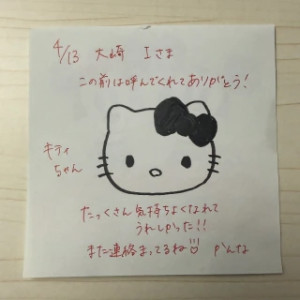 4/13 大崎 Iさま
この前は呼んでくれてありがとう!
キティ
ちゃん
たっくさん気持ちよくなれて
うれしかった!!
また連絡まってるね かんな